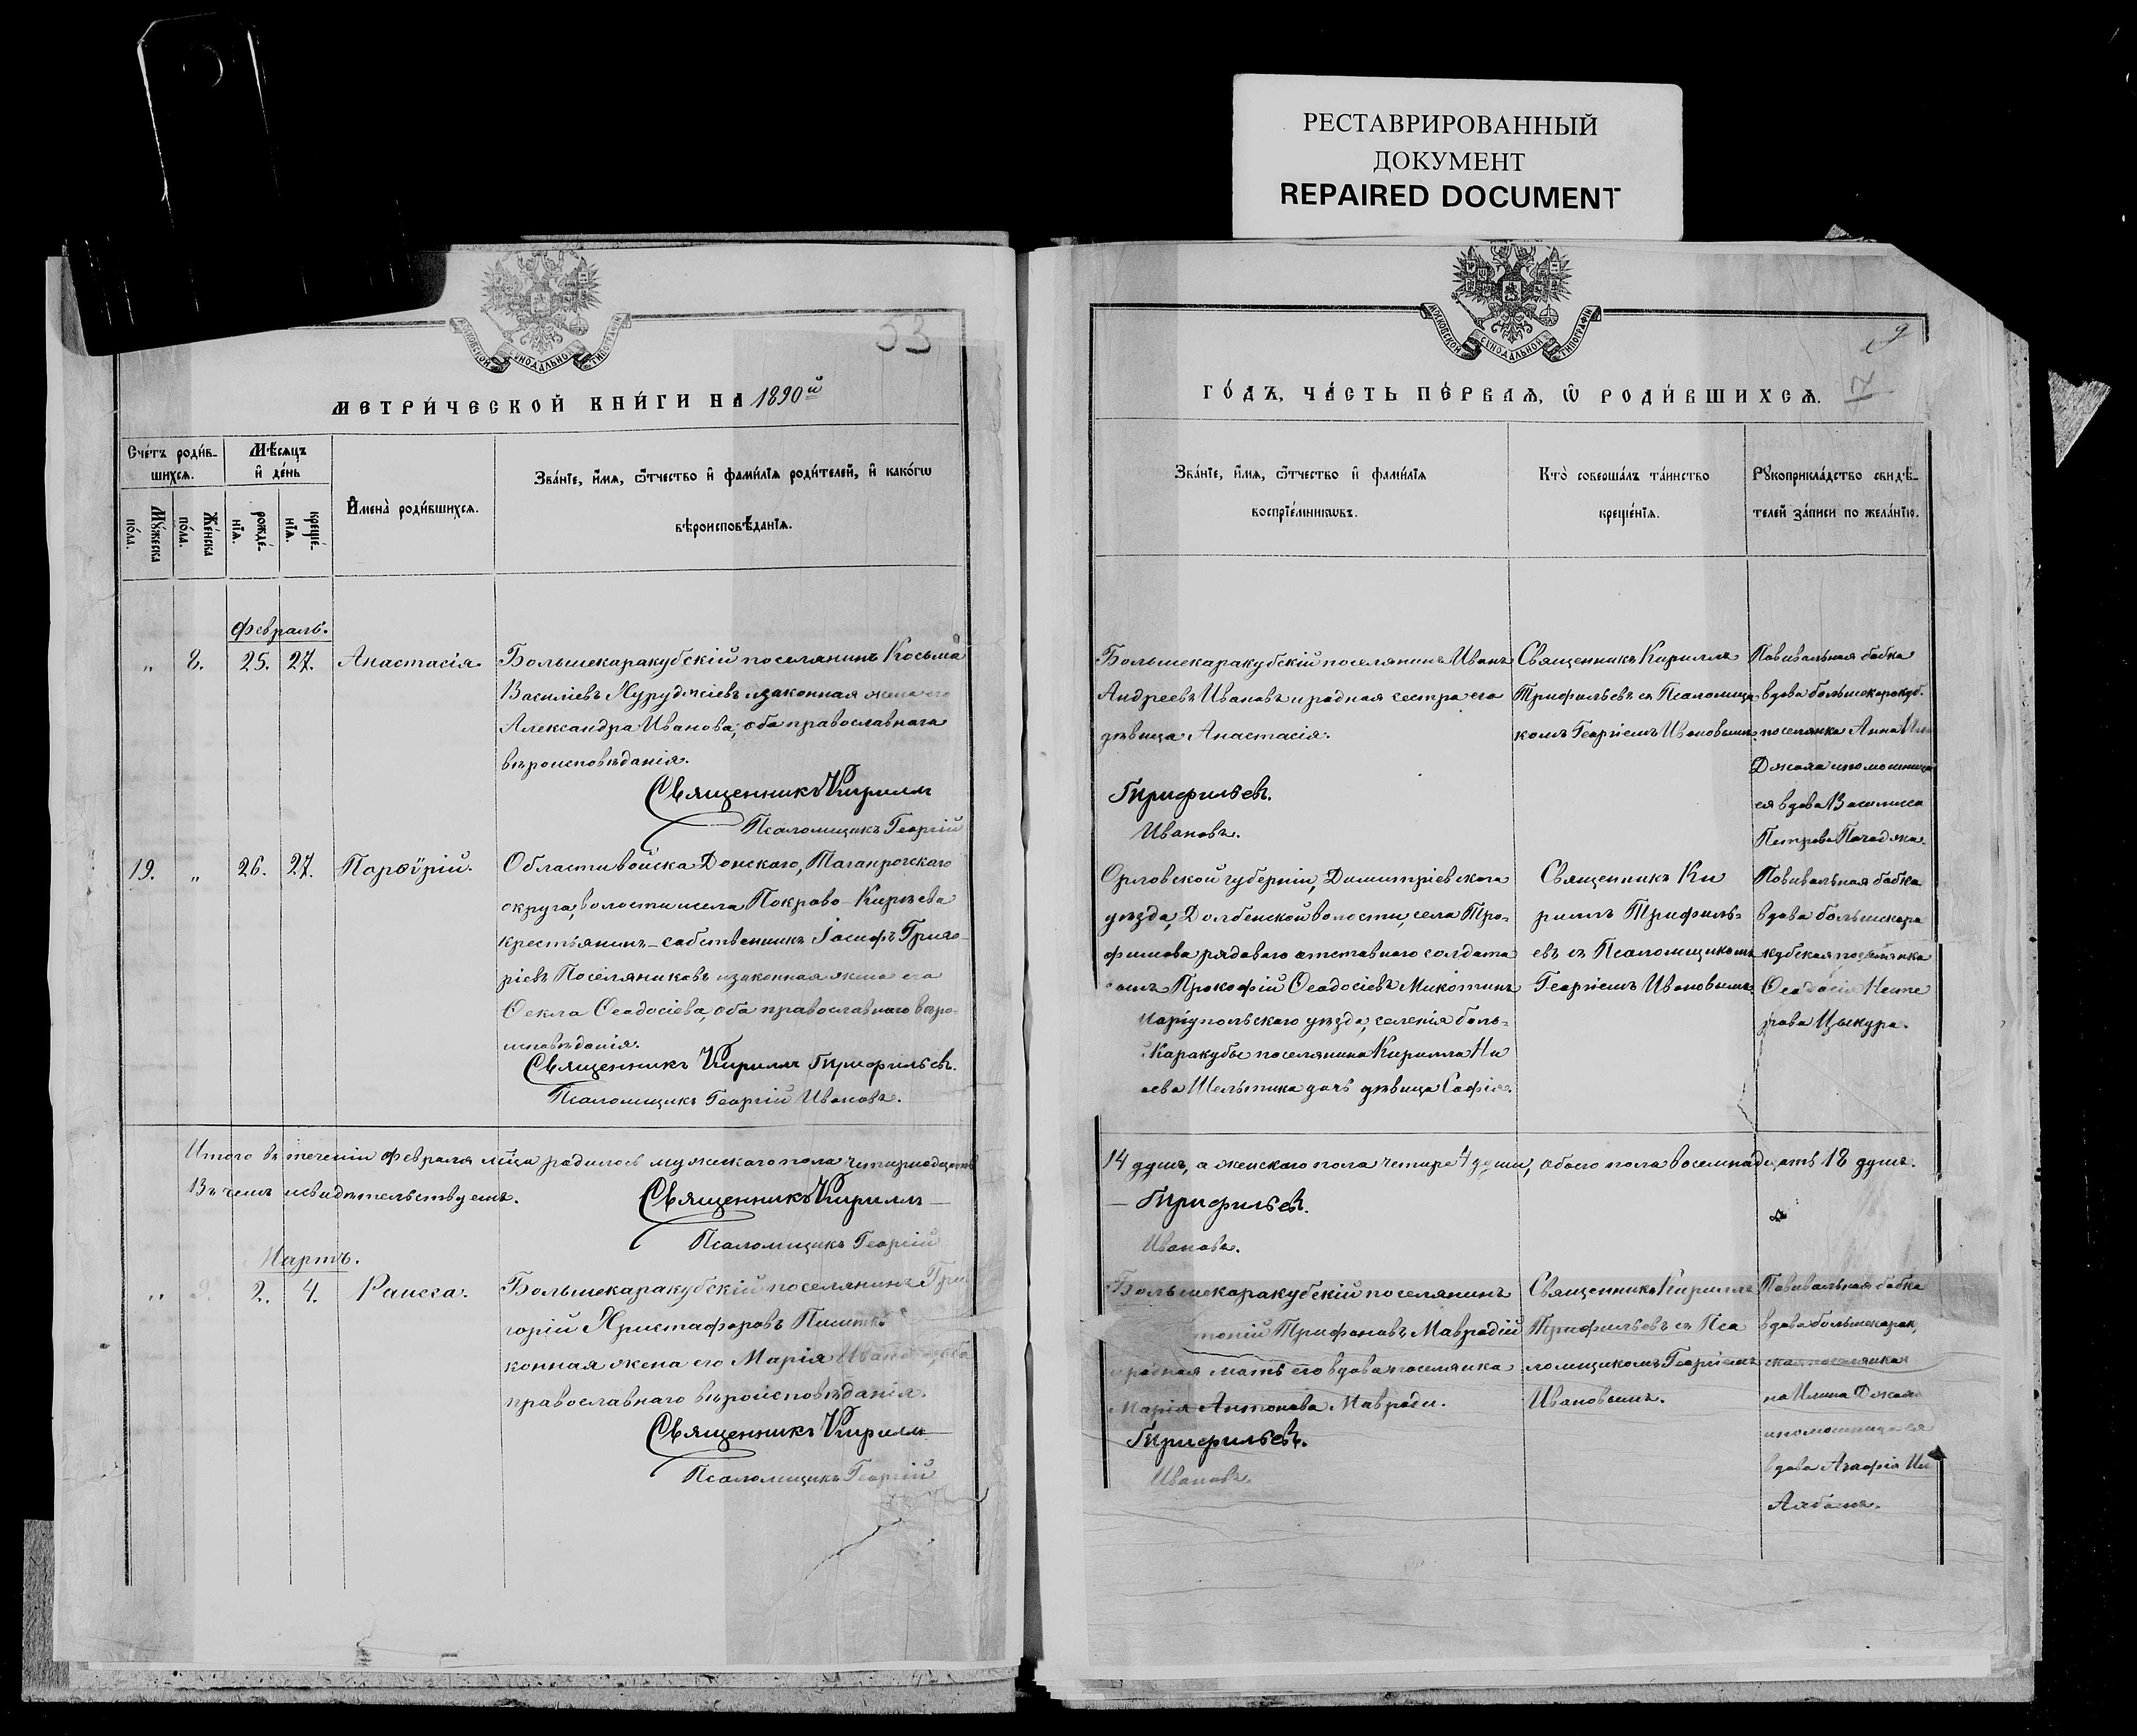 РЕСТАВРИРОВАННЫЙ
ДОКУМЕНТ
REPAIRED DOCUMENT
МОСКОВСКОЙ СУНОДАЛЬНОЙ ТИПОГРАФІИ
53
МЕТРИ́ЧЕСКОЙ КНИ́ГИ НА 1890й
Сче́тъ роди́в-
шихсѧ.
Мѣ́сяцъ
и҆ де́нь
Мꙋ́жеска
по́ла.
Же́нска
по́ла.
рожде́-
нїѧ.
креще́-
нїѧ.
И҆мена̀ роди́вшихсѧ.
Зва́нїе, и҆́мѧ, ѻ҆́тчество и҆ фами́лїѧ роди́телей, и҆ како́гѡ
вѣроисповѣ́данїѧ.
Февраль.
„ 8. 25. 27. Анастасія.
Большекаракубскій поселянинъ Косьма
Василіевъ Хуруджіевъ и законная жена его
Александра Иванова; оба православнаго
вѣроисповѣданія.
Священникъ Кириллъ
Псаломщикъ Георгій
19. „ 26. 27. Порфѵрій.
Области войска Донскаго, Таганрогскаго
округа, волости и села Покрово-Кирѣева
крестьянинъ-собственникъ Іосифъ Григо-
ріевъ Поселяниковъ и законная жена его
Ѳекла Ѳеодосіева, оба православнаго вѣро-
исповѣданія.
Священникъ Кириллъ Трифильевъ.
Псаломщикъ Георгій Ивановъ.
Итого въ теченіи февраля мѣсяца родилось мужескаго пола четырнадцать
Въ чемъ и свидѣтельствуемъ.
Священникъ Кириллъ
Псаломщикъ Георгій
Мартъ.
„ 9. 2. 4. Раисса.
Большекаракубскій поселянинъ Гри
горій Христофоровъ
конная жена его Марія
православнаго вѣроисповѣданія.
Священникъ Кириллъ
Псаломщикъ Георгій
МОСКОВСКОЙ СУНОДАЛЬНОЙ ТИПОГРАФІИ
9
ГО́ДЪ, ЧА́СТЬ ПЕ́РВАѦ, Ѡ҆ РОДИ́ВШИХСѦ.
Зва́нїе, и҆́мѧ, ѻ҆́тчество и҆ фами́лїѧ
воспрїе́мникѡвъ.
Кто̀ соверша́лъ та́инство
креще́нїѧ.
Рꙋкоприкла́дство свидѣ́-
телей за́писи по жела́нїю.
Большекаракубскій поселянинъ Иванъ
Андреевъ Ивановъ и родная сестра его
дѣвица Анастасія.
Трифильевъ.
Ивановъ.
Священникъ Кириллъ
Трифильевъ съ Псаломщи-
комъ Георгіемъ Ивановымъ.
Повивальная бабка
вдова большекаракуб.
поселянка Анна
Джала и помощница
ея вдова Василиса
Петрова
Орловской губерніи, Димитріевскаго
уѣзда, Долбенской волости, села Тро-
фимова рядоваго отставнаго солдата
сынъ Прокофій Ѳеодосіевъ Микотинъ
Маріупольскаго уѣзда, селенія боль-
Каракубы поселянина Кирилла Ни
аева Шельтика дочь дѣвица Софія.
Священникъ Ки
риллъ Трифиль-
евъ съ Псаломщикомъ
Георгіемъ Ивановымъ.
Повивальная бабка
вдова большекара
кубская поселянка
Ѳеодосія Несте
рова Цыкура.
14 душъ, а женскаго пола четыре 4 души, обоего пола восемнадцать 18 душъ.
Трифильевъ.
Ивановъ.
Большекаракубскій поселянинъ
тоній Трифоновъ Мавродій
и родная мать его вдова поселянка
Марія Антонова Мавроди.
Трифильевъ.
Ивановъ.
Священникъ Кириллъ
Трифильевъ съ Пса
ломщикомъ Георгіемъ
Ивановымъ.
Повивальная бабка
вдова большекарак.
ская поселянка
на Ильина Джала
и помощница ея
вдова Агафія